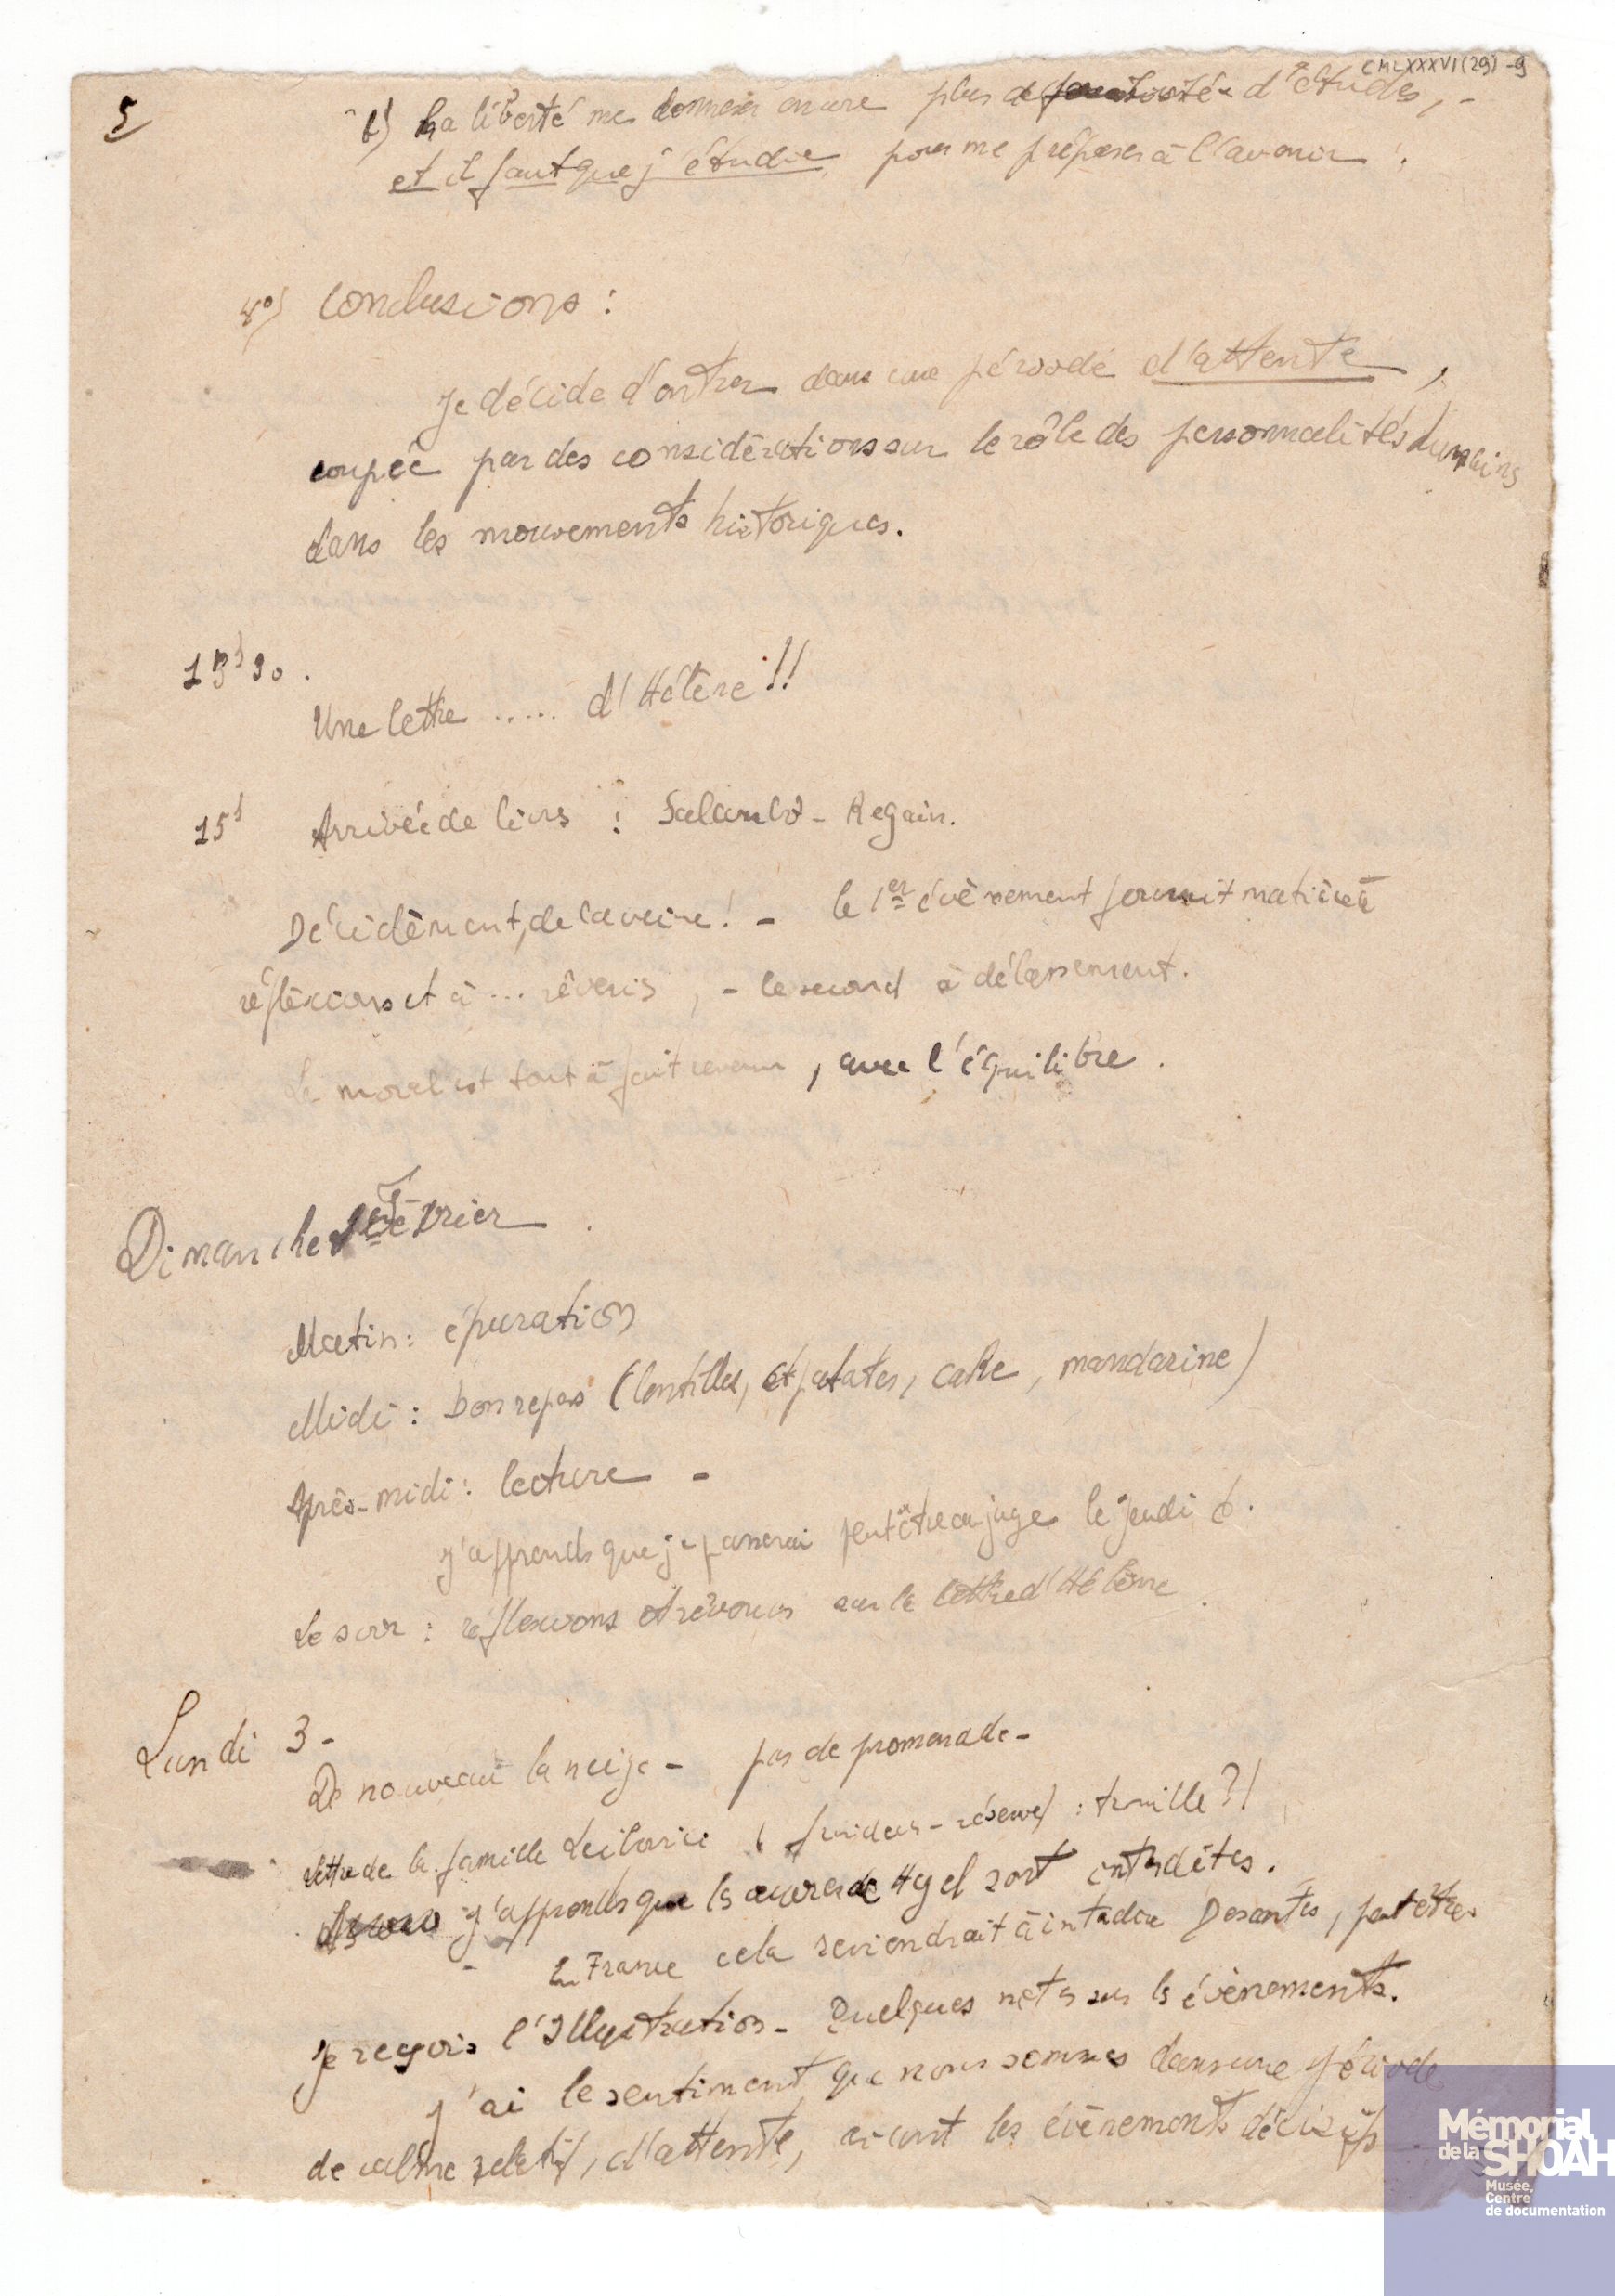 CMLXXXVI(29)-9
5
b) La liberté me donnera encore plus de d'études, -
et il faut que j'étudie pour me préparer à l'avenir.
4°) Conclusions :
Je décide d'entrer dans une période d'attente,
coupée par des considérations sur le rôle des personnalités humaines
dans les mouvements historiques.
13h30.
Une lettre ..... d'Hélène !!
15h Arrivée de livres : Salambô - Regain.
Décidément, de la veine ! - le 1er évènement fournit matière à
réflexions et à ... rêveries, - le second à délassement.
Le moral est tout à fait revenu, avec l'équilibre.
Dimanche Février.
Matin : épuration
Midi : bon repas (lentilles, et patates, cake, mandarine)
Après-midi : lecture -
J'apprends que je passerai peut être au juge le jeudi 6.
Le soir : réflexions et rêveries sur la lettre d'Hélène.
Lundi 3 -
De nouveau la neige - pas de promenade -
Lettre de la famille ( - réserve) : trouille ?!
J'apprends que les œuvres de Hegel sont interdites.
En France cela reviendrait à interdire Descartes, peut être
Je reçois l'Illustration - Quelques notes sur les évènements.
J'ai le sentiment que nous sommes dans une période
de calme relatif, d'attente, avant les évènements décisifs
Mémorial
de la SHOAH
Musée,
Centre
de documentation